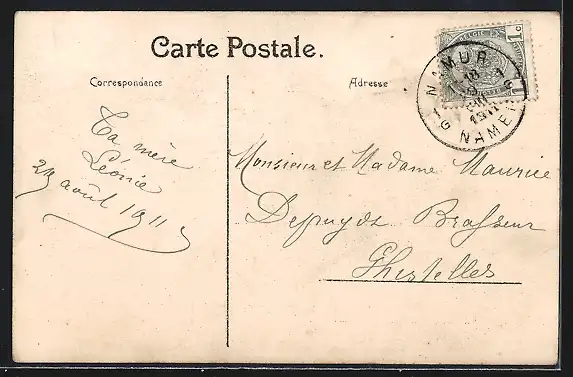 Carte Postale.
Correspondance
Ta mère
Léonie
29 août 1911
Adresse
Monsieur et Madame Maurice
Depuydt Brasseur
Ghistelles
NAMUR 1
18
1911
NAMEN 1
1c